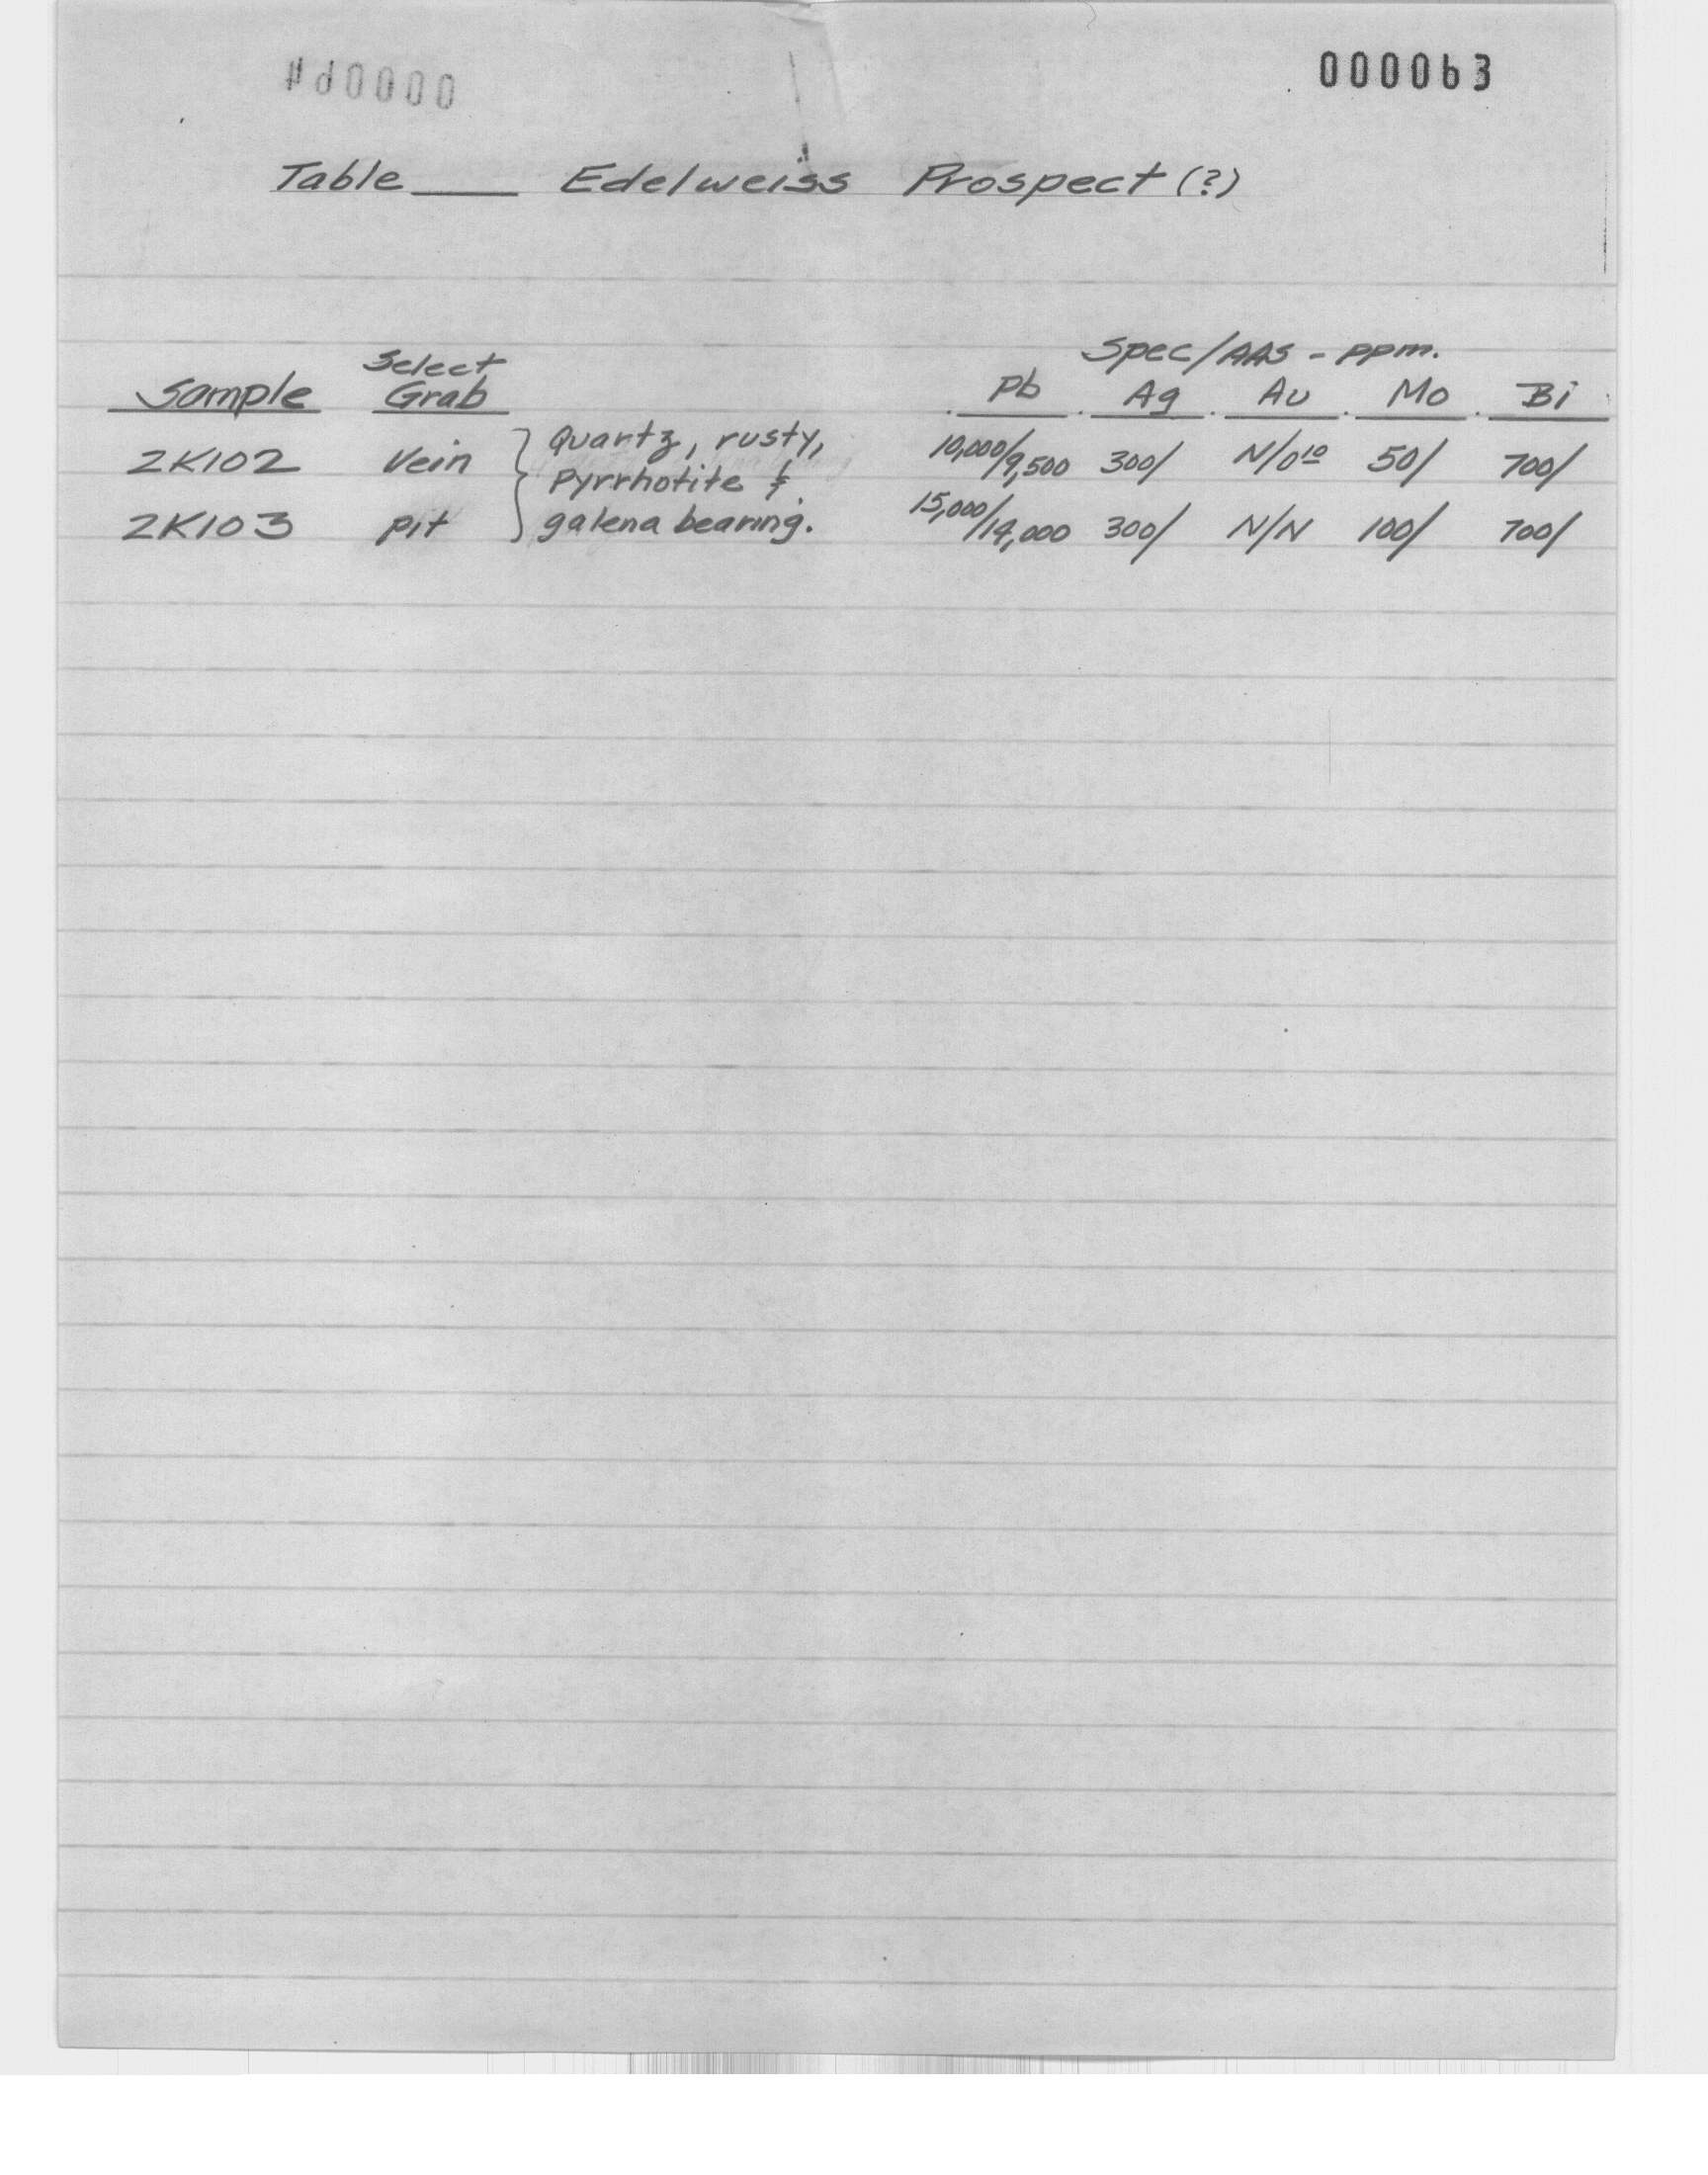 000063
Table ____ Edelweiss Prospect (?)
Spec/AAS - ppm.
Sample Select Grab Pb Ag Au Mo Bi
2K102 Vein } Quartz, rusty, 10,000/9,500 300/ N/0.10 50/ 700/
Pyrrhotite &
2K103 pit galena bearing. 15,000/14,000 300/ N/N 100/ 700/